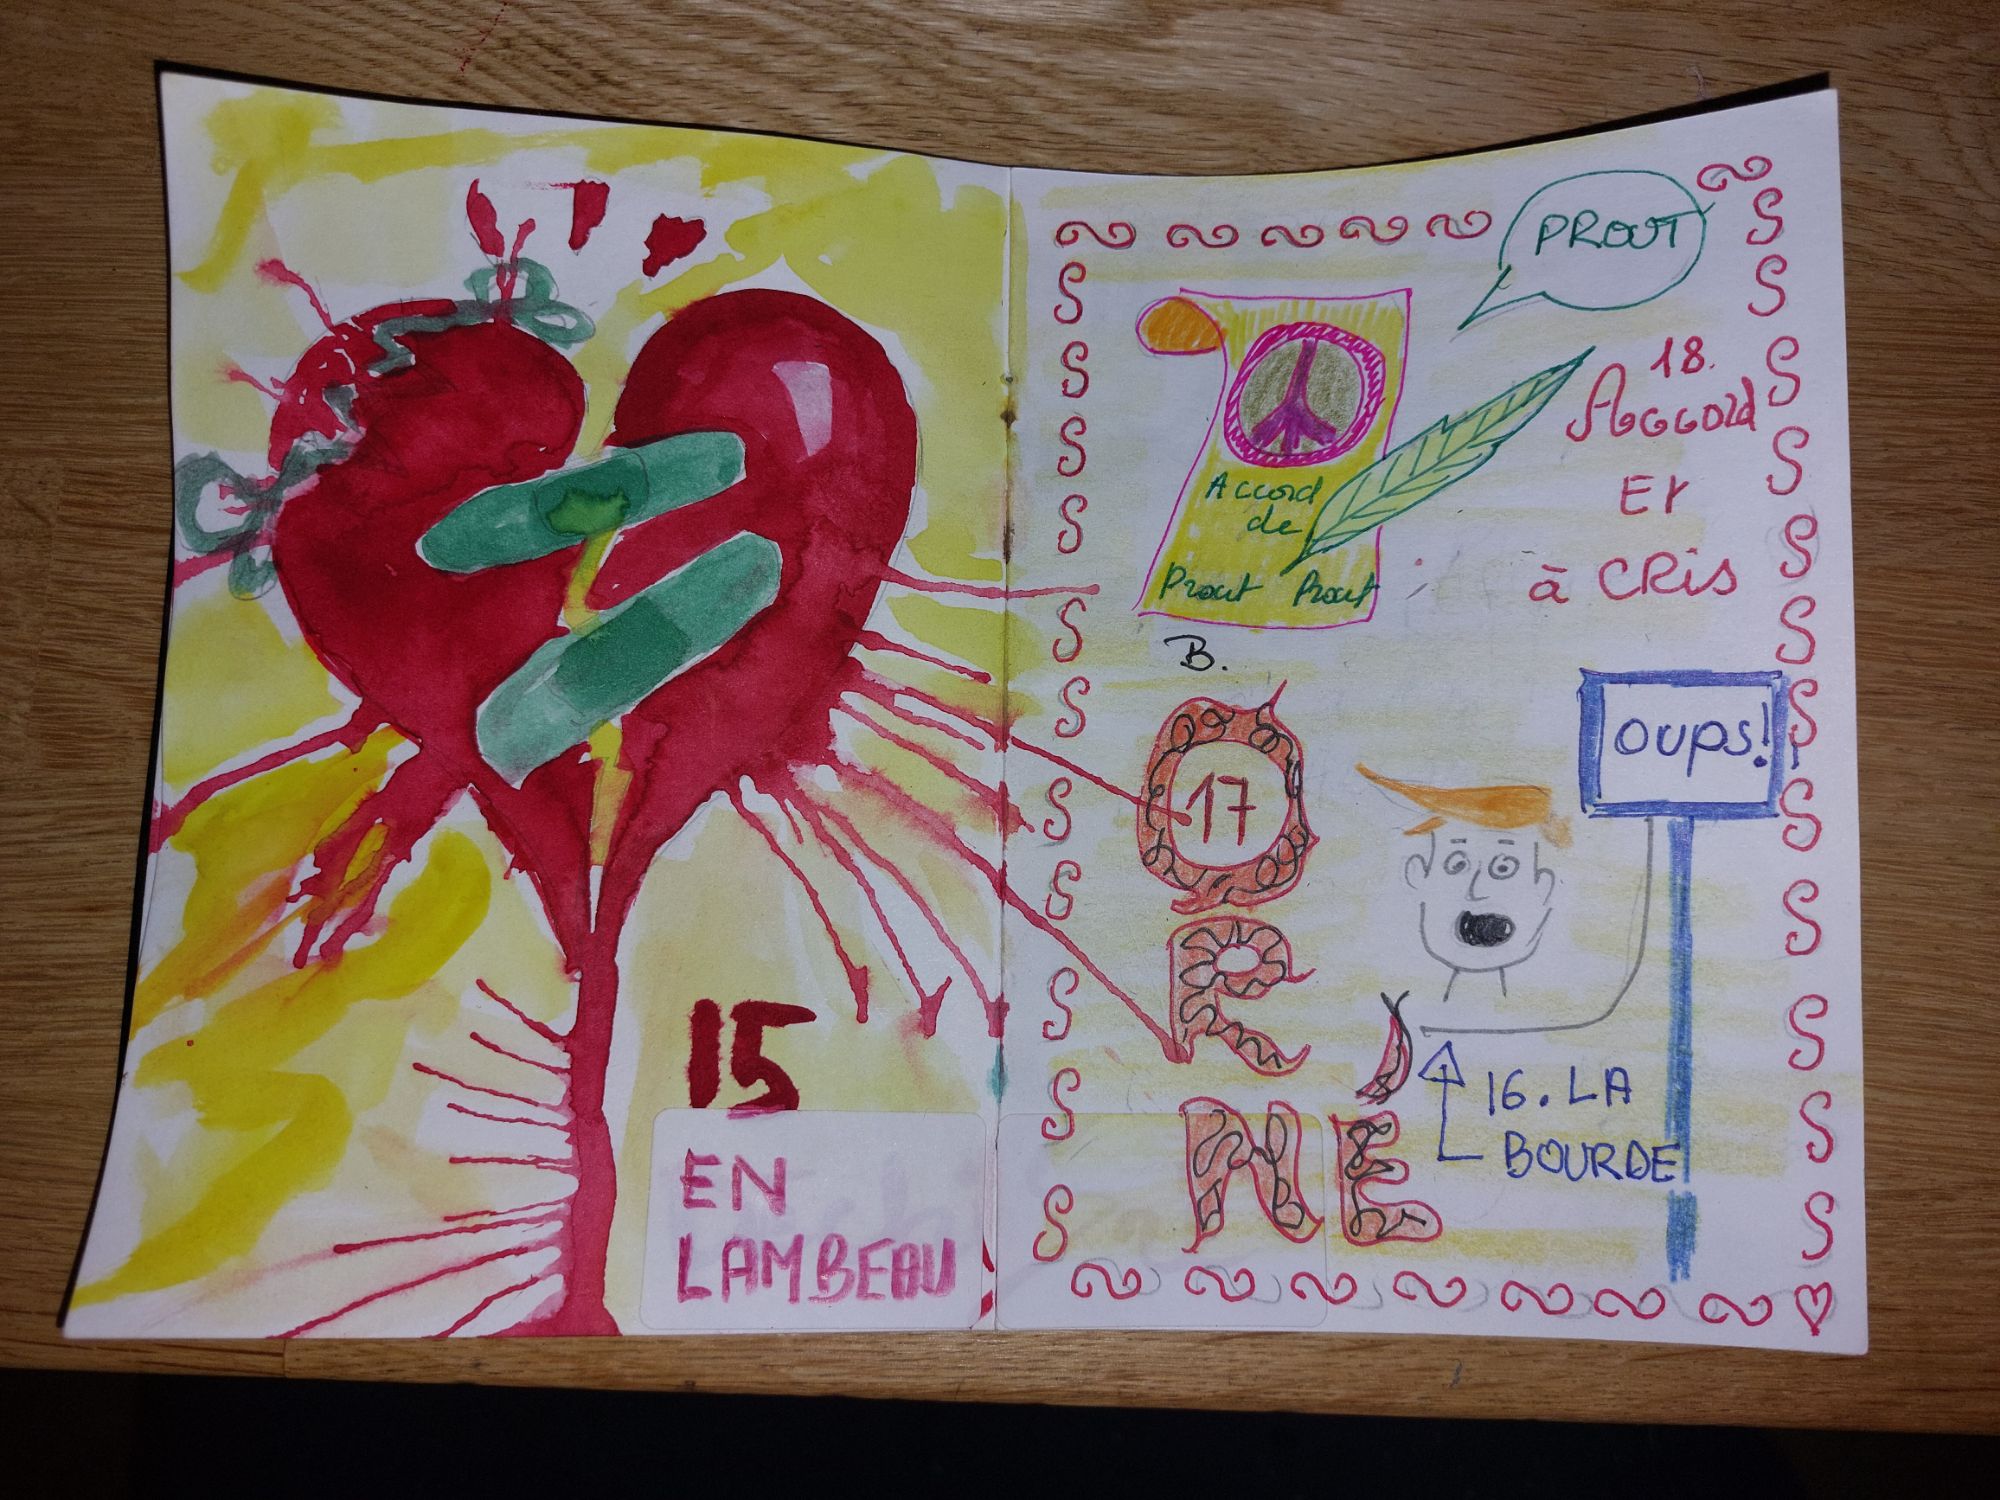 15
EN
LAMBEAU
PROUT
18.
Accord
Et
à CRis
Accord
de
Prout Prout
B.
17
ORNÉ
oups!
16. LA
BOURDE